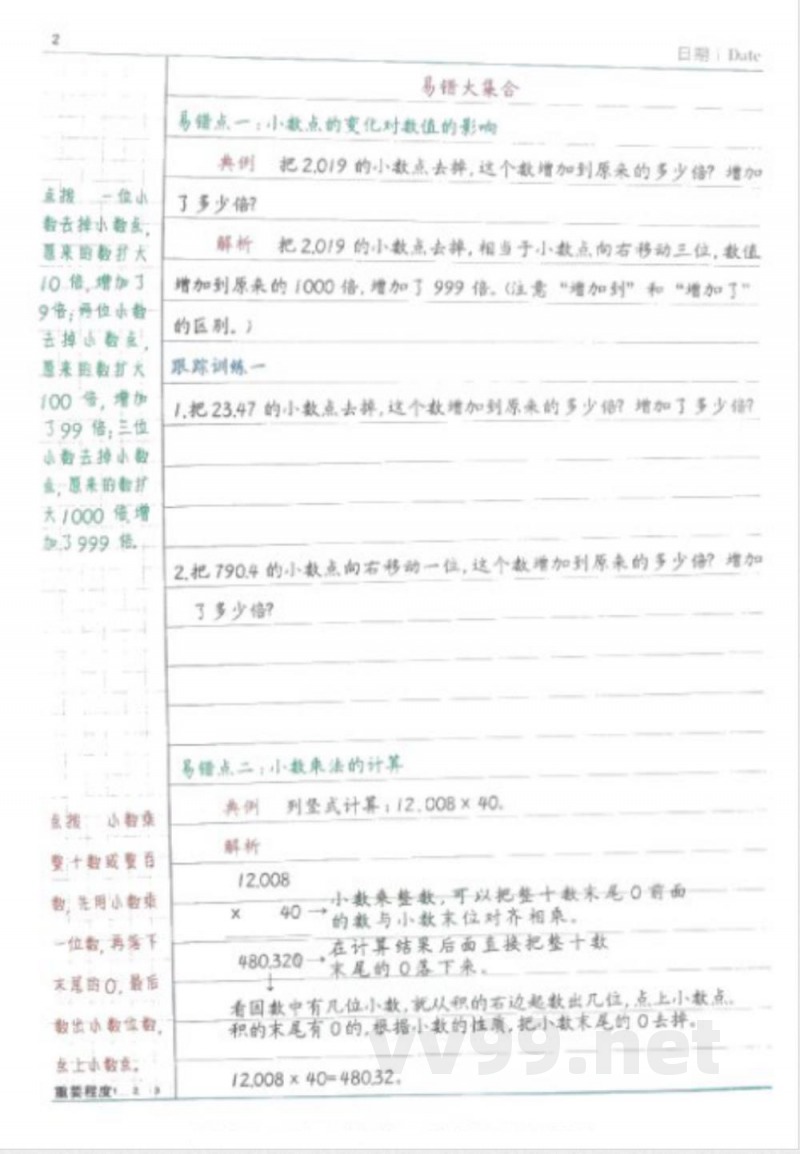 2
日期 | Date
易错大集合
易错点一：小数点的变化对数值的影响
典例 把2.019的小数点去掉，这个数增加到原来的多少倍？增加
了多少倍？
解析 把2.019的小数点去掉，相当于小数点向右移动三位，数值
增加到原来的1000倍，增加了999倍。（注意“增加到”和“增加了”
的区别。）
跟踪训练一
1.把23.47的小数点去掉，这个数增加到原来的多少倍？增加了多少倍？
2.把790.4的小数点向右移动一位，这个数增加到原来的多少倍？增加
了多少倍？
点拨 一位小
数去掉小数点，
原来的数扩大
10倍，增加了
9倍；两位小数
去掉小数点，
原来的数扩大
100倍，增加
了99倍；三位
小数去掉小数
点，原来的数扩
大1000倍，增
加了999倍。
易错点二：小数乘法的计算
典例 列竖式计算：12.008×40。
解析
12.008
× 40 → 小数乘整数，可以把整十数末尾0前面
的数与小数末位对齐相乘。
480.320 → 在计算结果后面直接把整十数
末尾的0落下来。
↓
看因数中有几位小数，就从积的右边起数出几位，点上小数点。
积的末尾有0的，根据小数的性质，把小数末尾的0去掉。
12.008×40=480.32。
点拨 小数乘
整十数或整百
数，先用小数乘
一位数，再落下
末尾的0，最后
数出小数位数，
点上小数点。
重要程度 1 2 3
vv99.net